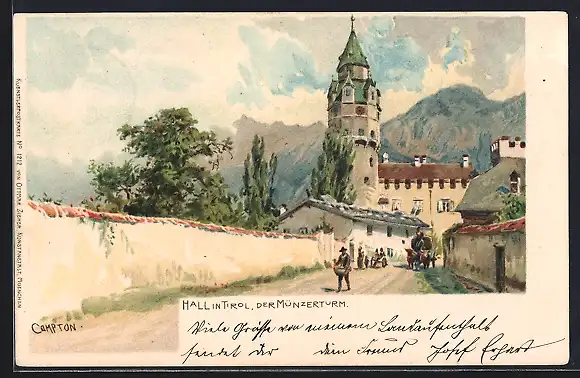 KUENSTLERPOSTKARTE No 1212 VON OTTMAR ZIEHER, KUNSTANSTALT, MUENCHEN
HALL IN TIROL, DER MÜNZERTURM.
COMPTON.
Viele Grüße von meinem Landaufenthalt
sendet der dem Josef